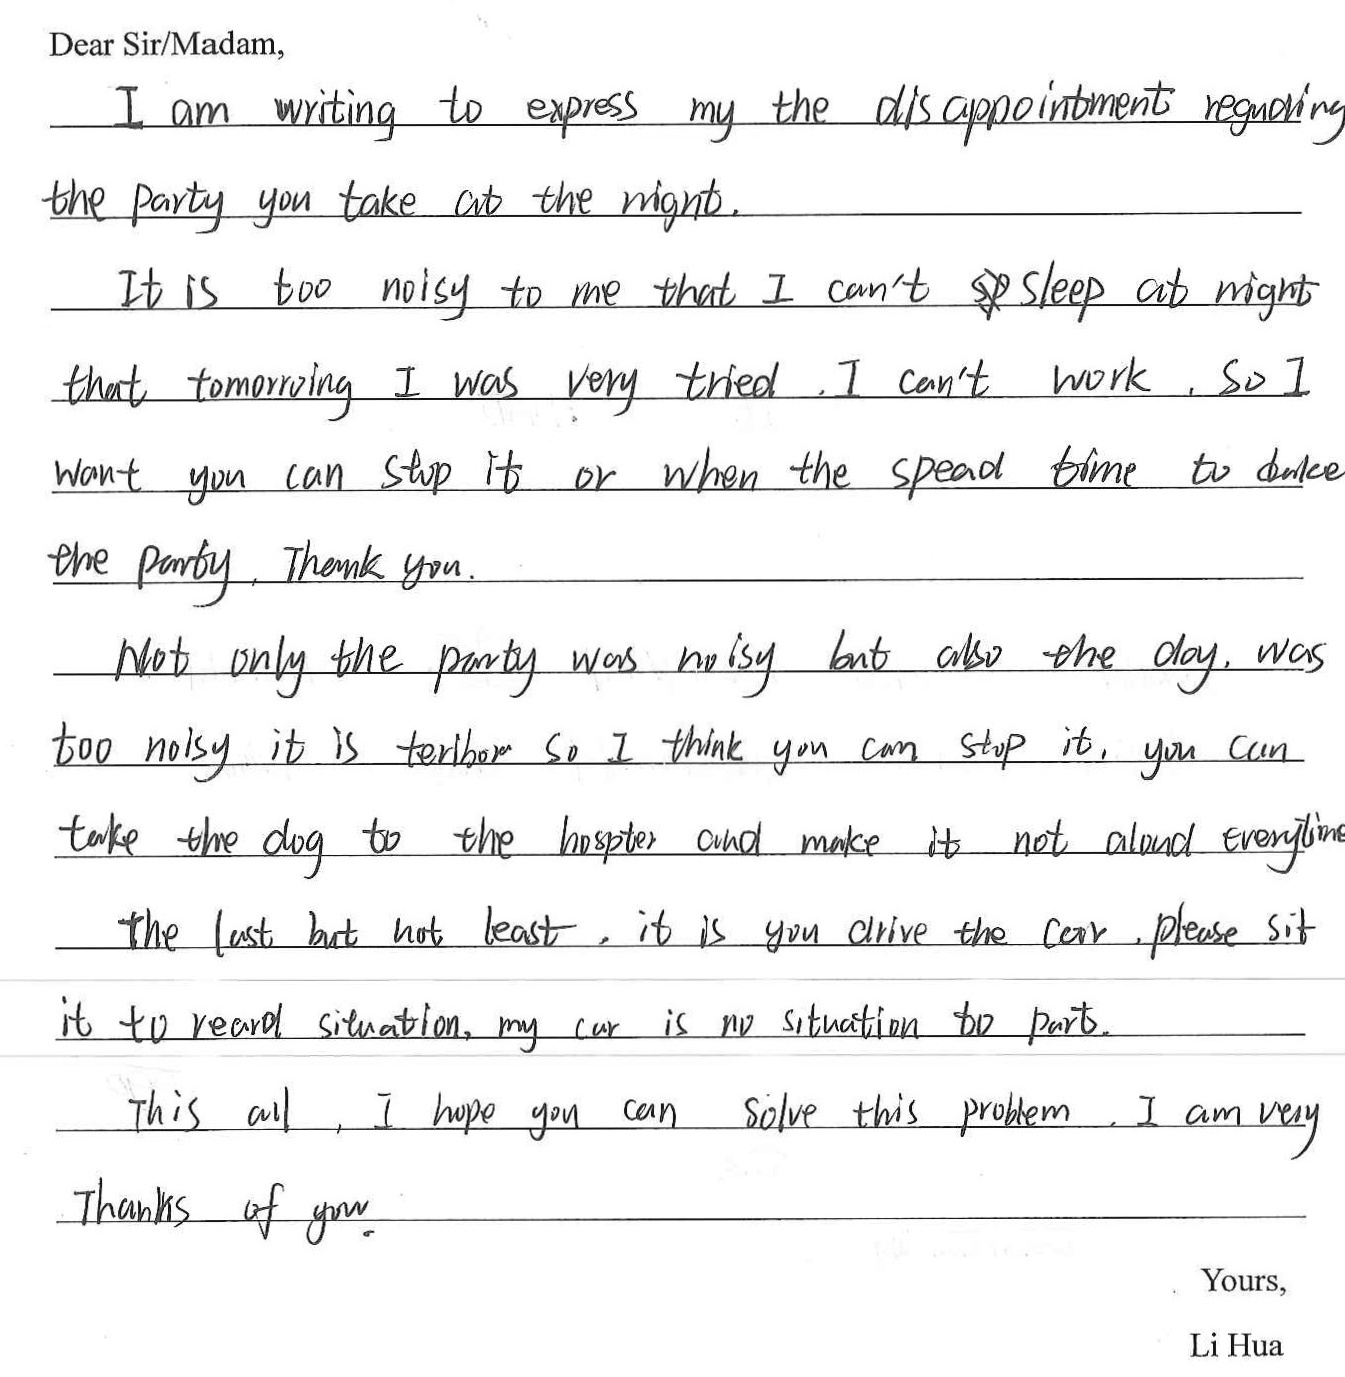 Dear Sir/Madam,
I am writing to express my the disappointment regnoring
the party you take at the night.
It is too noisy to me that I can't sleep at night
that tomorrowing I was very tried. I can't work, so I
want you can stop it or when the spead time to take
the party, Thank you.
Not only the party was noisy but also the doy, was
too noisy it is teribor so I think you can stop it, you can
take the dog to the hospter and make it not aloud everytime
The last but not least, it is you drive the car, please sit
it to reard situation, my car is no situation to part.
This all, I hope you can solve this problem. I am very
Thanks of you.
Yours,
Li Hua